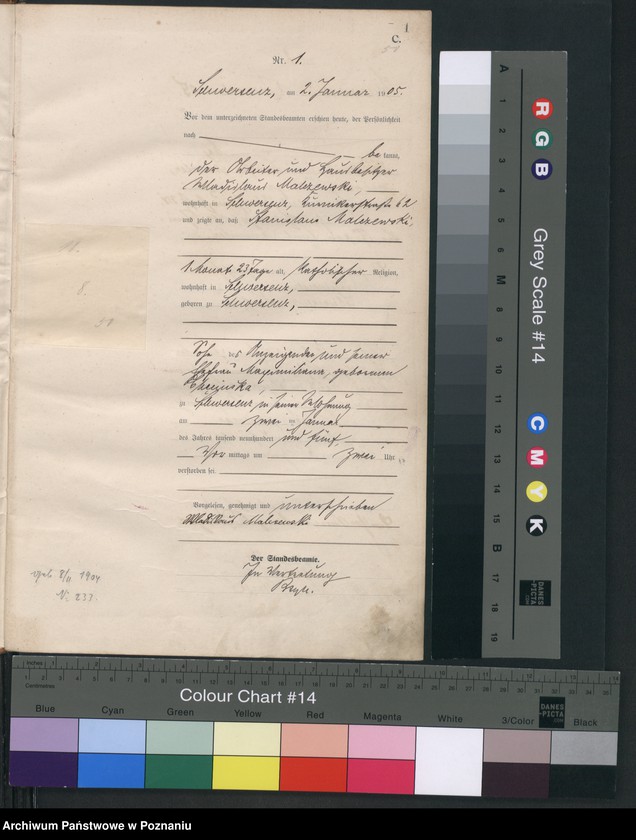 C.
Nr. 1.
Schwersenz, am 2. Januar 1905.
Vor dem unterzeichneten Standesbeamten erschien heute, der Persönlichkeit
nach
be kannt,
der Arbeiter und Hausbesitzer
Wladislaus Malezewski,
wohnhaft in Schwersenz, Kurnikerstraße 62
und zeigte an, daß Stanislaus Malezewski,
1 Monat 23 Tage alt, katholischer Religion,
wohnhaft in Schwersenz,
geboren zu Schwersenz,
Sohn des Anzeigenden und seiner
Ehefrau Maximiliana, geborenen
zu Schwersenz, in seiner Wohnung
am zwei ten Januar
des Jahres tausend neunhundert und fünf,
Vor mittags um zwei Uhr
verstorben sei.
Vorgelesen, genehmigt und unterschrieben
Wladislaus Malezewski
Der Standesbeamte.
In Vertretung
geb. 8/11 1904
N. 233.
11.
8.
A 1 2 3 4 5 6 M 8 9 10 11 12 13 14 15 B 17 18 19
R G B
Grey Scale #14
C M Y K
DANES-PICTA
Inches
Centimetres
Colour Chart #14
Blue Cyan Green Yellow Red Magenta White 3/Color Black
DANES-PICTA
Archiwum Państwowe w Poznaniu